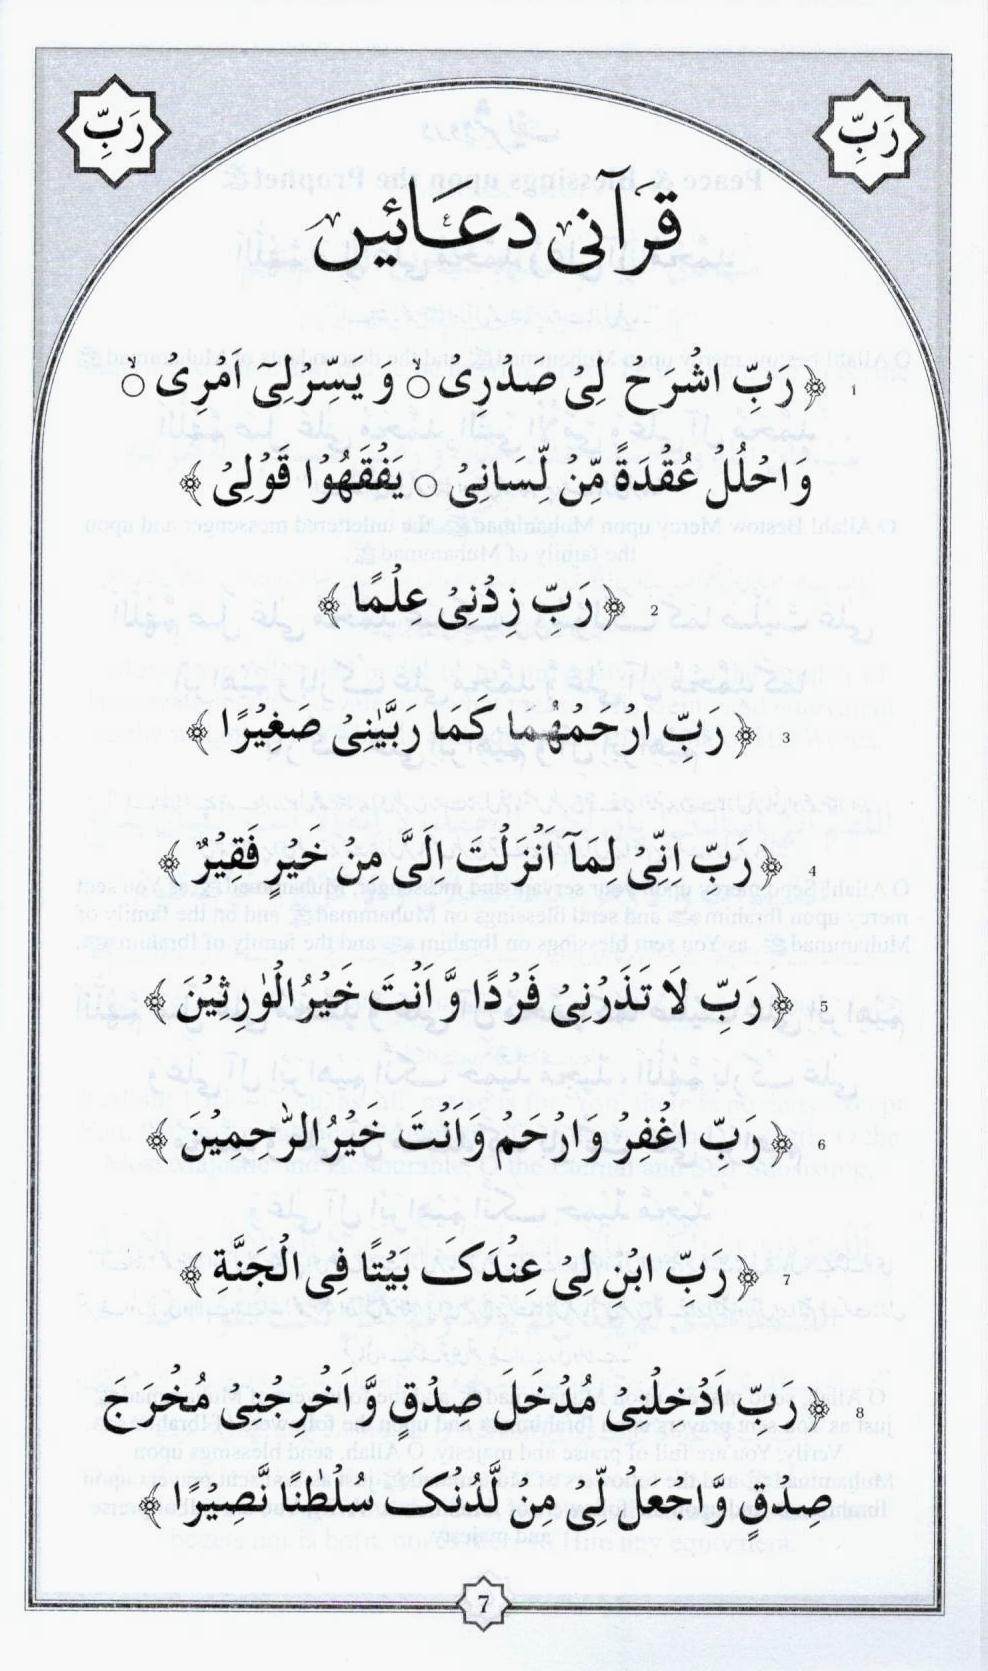 رَبِّ
رَبِّ
قرآنی دعائیں
1 ﴿ رَبِّ اشْرَحْ لِیْ صَدْرِیْ ۙ وَ یَسِّرْلِیْۤ اَمْرِیْ ۙ
وَاحْلُلْ عُقْدَةً مِّنْ لِّسَانِیْ ۙ یَفْقَهُوْا قَوْلِیْ ﴾
2 ﴿ رَبِّ زِدْنِیْ عِلْمًا ﴾
3 ﴿ رَبِّ ارْحَمْهُما كَمَا رَبَّیٰنِیْ صَغِیْرًا ﴾
4 ﴿ رَبِّ اِنِّیْ لِمَاۤ اَنْزَلْتَ اِلَیَّ مِنْ خَیْرٍ فَقِیْرٌ ﴾
5 ﴿ رَبِّ لَا تَذَرْنِیْ فَرْدًا وَّ اَنْتَ خَیْرُ الْوٰرِثِیْنَ ﴾
6 ﴿ رَبِّ اغْفِرْ وَ ارْحَمْ وَاَنْتَ خَیْرُ الرّٰحِمِیْنَ ﴾
7 ﴿ رَبِّ ابْنِ لِیْ عِنْدَکَ بَیْتًا فِی الْجَنَّةِ ﴾
8 ﴿ رَبِّ اَدْخِلْنِیْ مُدْخَلَ صِدْقٍ وَّ اَخْرِجْنِیْ مُخْرَجَ
صِدْقٍ وَّ اجْعَلْ لِّیْ مِنْ لَّدُنْکَ سُلْطٰنًا نَّصِیْرًا ﴾
7